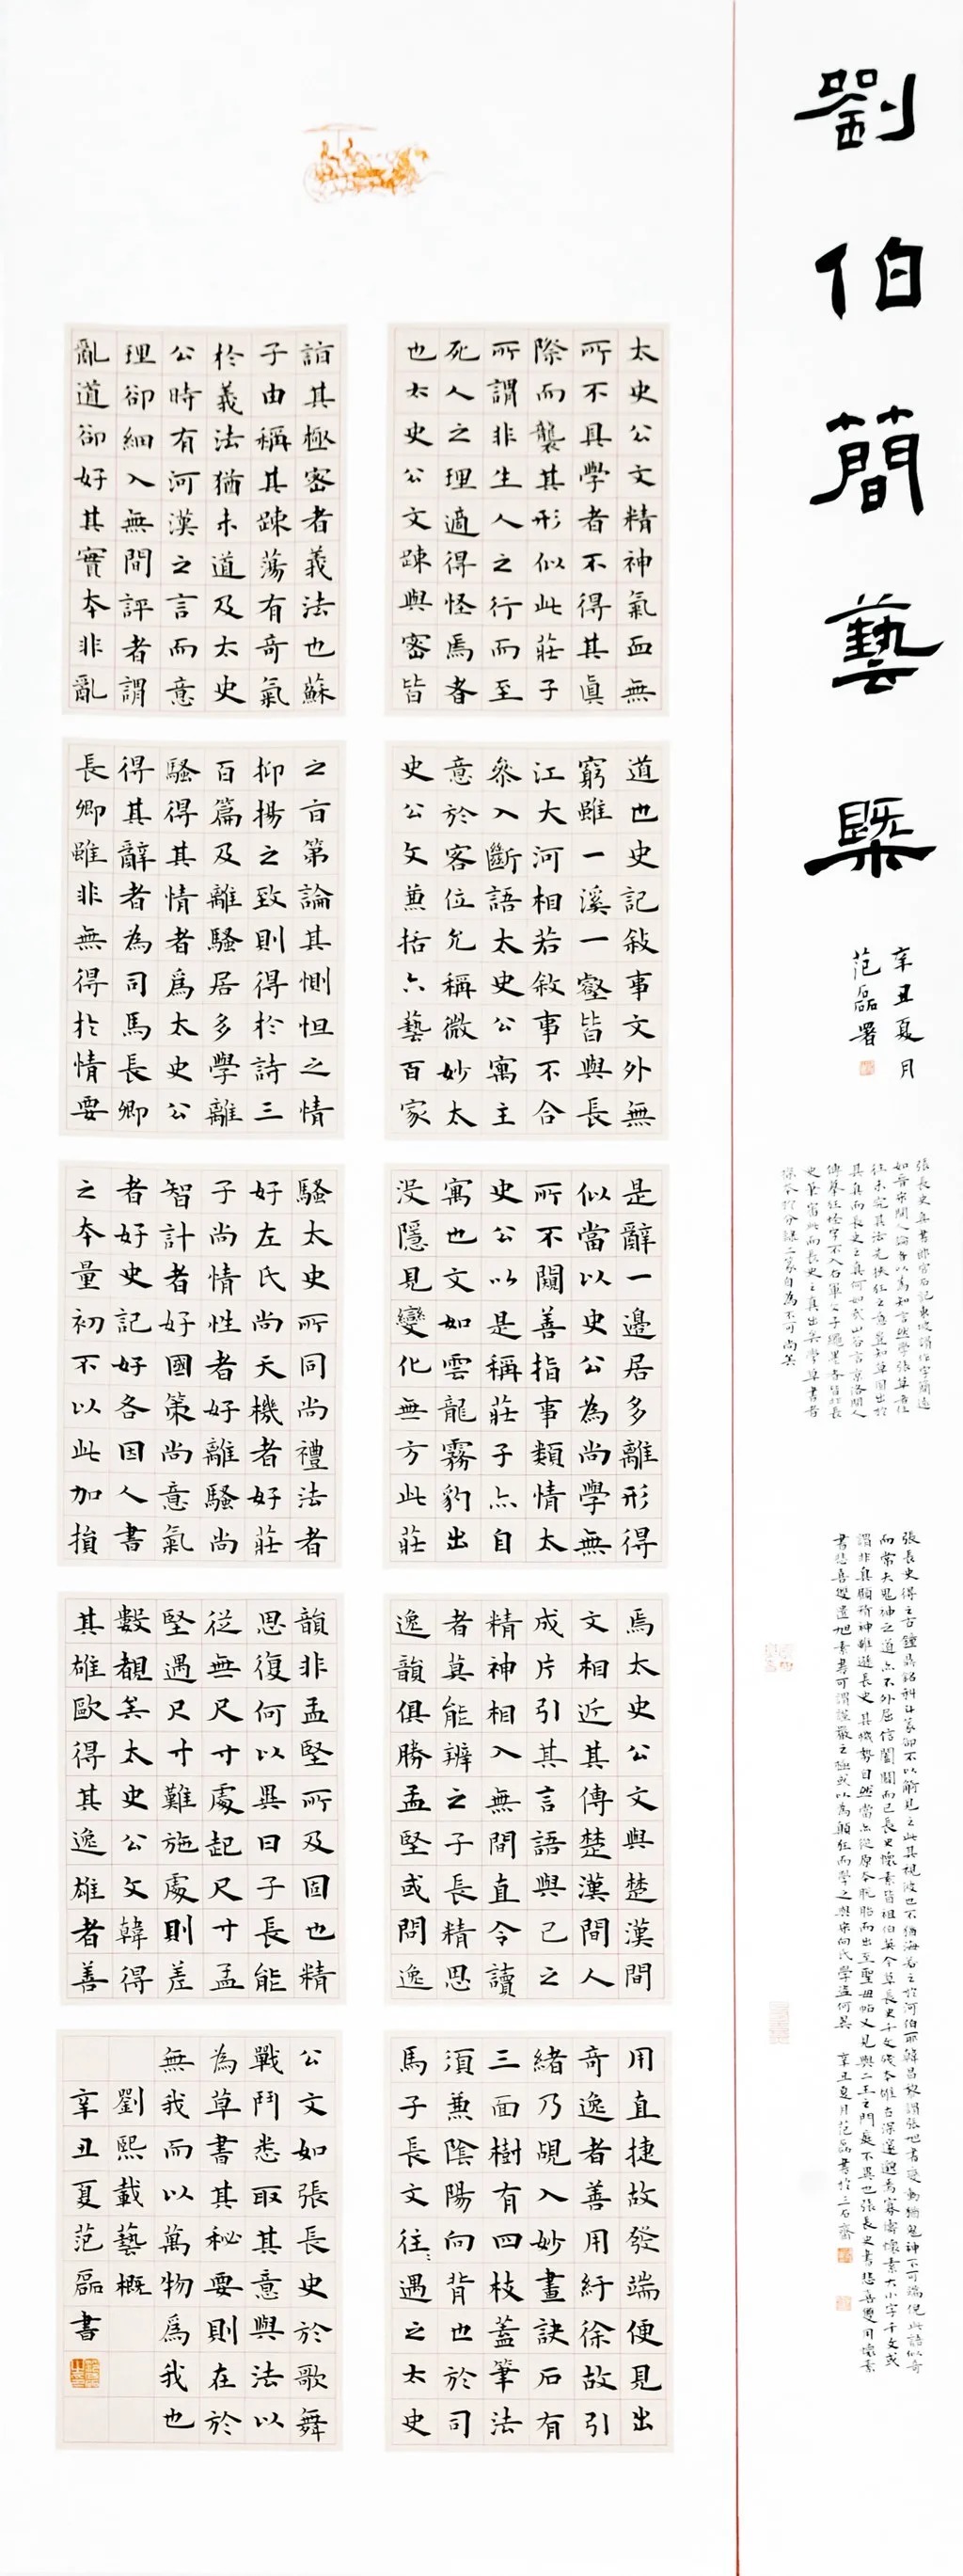 劉伯簡藝槩
辛丑夏月
范磊署
張長史真書郎官石記東坡謂作字簡遠
如晉宋間人論者以為知言然學張草者往
往未究其法先挾狂之意豈知草固出於
其真而長史之真何如哉山谷言京洛間人
傳摹狂怪字不入右軍父子繩墨者皆非長
史筆審此而長史之真出矣學草書者
探本於分隸二篆自為不可尚矣
張長史得之古鐘鼎銘科斗篆卻不以觭見之此其視彼也不猶海若之於河伯耶韓昌黎謂張旭書變動猶鬼神不可端倪此語似奇
而常夫鬼神之道亦不外屈信闔闢而已長史懷素皆祖伯英今草長史千文殘本雄古深邃邈焉寡儔懷素大小字千文或
謂非真顧精神雖遜長史其機勢自然當亦從原本脫胎而出至聖母帖又見與二王之門庭不異也張長史書悲喜雙用懷素
書悲喜雙遣旭素書可謂謹嚴之極或以為顛狂而學之與宋向氏學盜何異 辛丑夏月范磊書於三石齋
太史公文精神氣血無
所不具學者不得其眞
際而襲其形似此莊子
所謂非生人之行而至
死人之理適得怪焉者
也太史公文踈與密皆
詣其極密者義法也蘇
子由稱其踈蕩有奇氣
於義法猶未道及太史
公時有河漢之言而意
理卻細入無間評者謂
亂道卻好其實本非亂
道也史記敍事文外無
窮雖一溪一壑皆與長
江大河相若敘事不合
參入斷語太史公寓主
意於客位允稱微妙太
史公文兼括六藝百家
之旨第論其惻怛之情
抑揚之致則得於詩三
百篇及離騷居多學離
騷得其情者爲太史公
得其辭者為司馬長卿
長卿雖非無得於情要
是辭一邊居多離形得
似當以史公為尚學無
所不闚善指事類情太
史公以是稱莊子亦自
寓也文如雲龍霧豹出
沒隱見變化無方此莊
騷太史所同尚禮法者
好左氏尚天機者好莊
子尚情性者好離騷尚
智計者好國策尚意氣
者好史記好各因人書
之本量初不以此加損
焉太史公文與楚漢間
文相近其傳楚漢間人
成片引其言語與己之
精神相入無間直令讀
者莫能辨之子長精思
逸韻俱勝孟堅或問逸
韻非孟堅所及固也精
思復何以異曰子長能
從無尺寸處起尺寸孟
堅遇尺寸難施處則差
數覩矣太史公文韓得
其雄歐得其逸雄者善
用直捷故發端便見出
奇逸者善用紆徐故引
緒乃覘入妙畫訣石有
三面樹有四枝蓋筆法
須兼陰陽向背也於司
馬子長文往〻遇之太史
公文如張長史於歌舞
戰鬥悉取其意與法以
為草書其秘要則在於
無我而以萬物爲我也
劉熙載藝概
辛丑夏范磊書